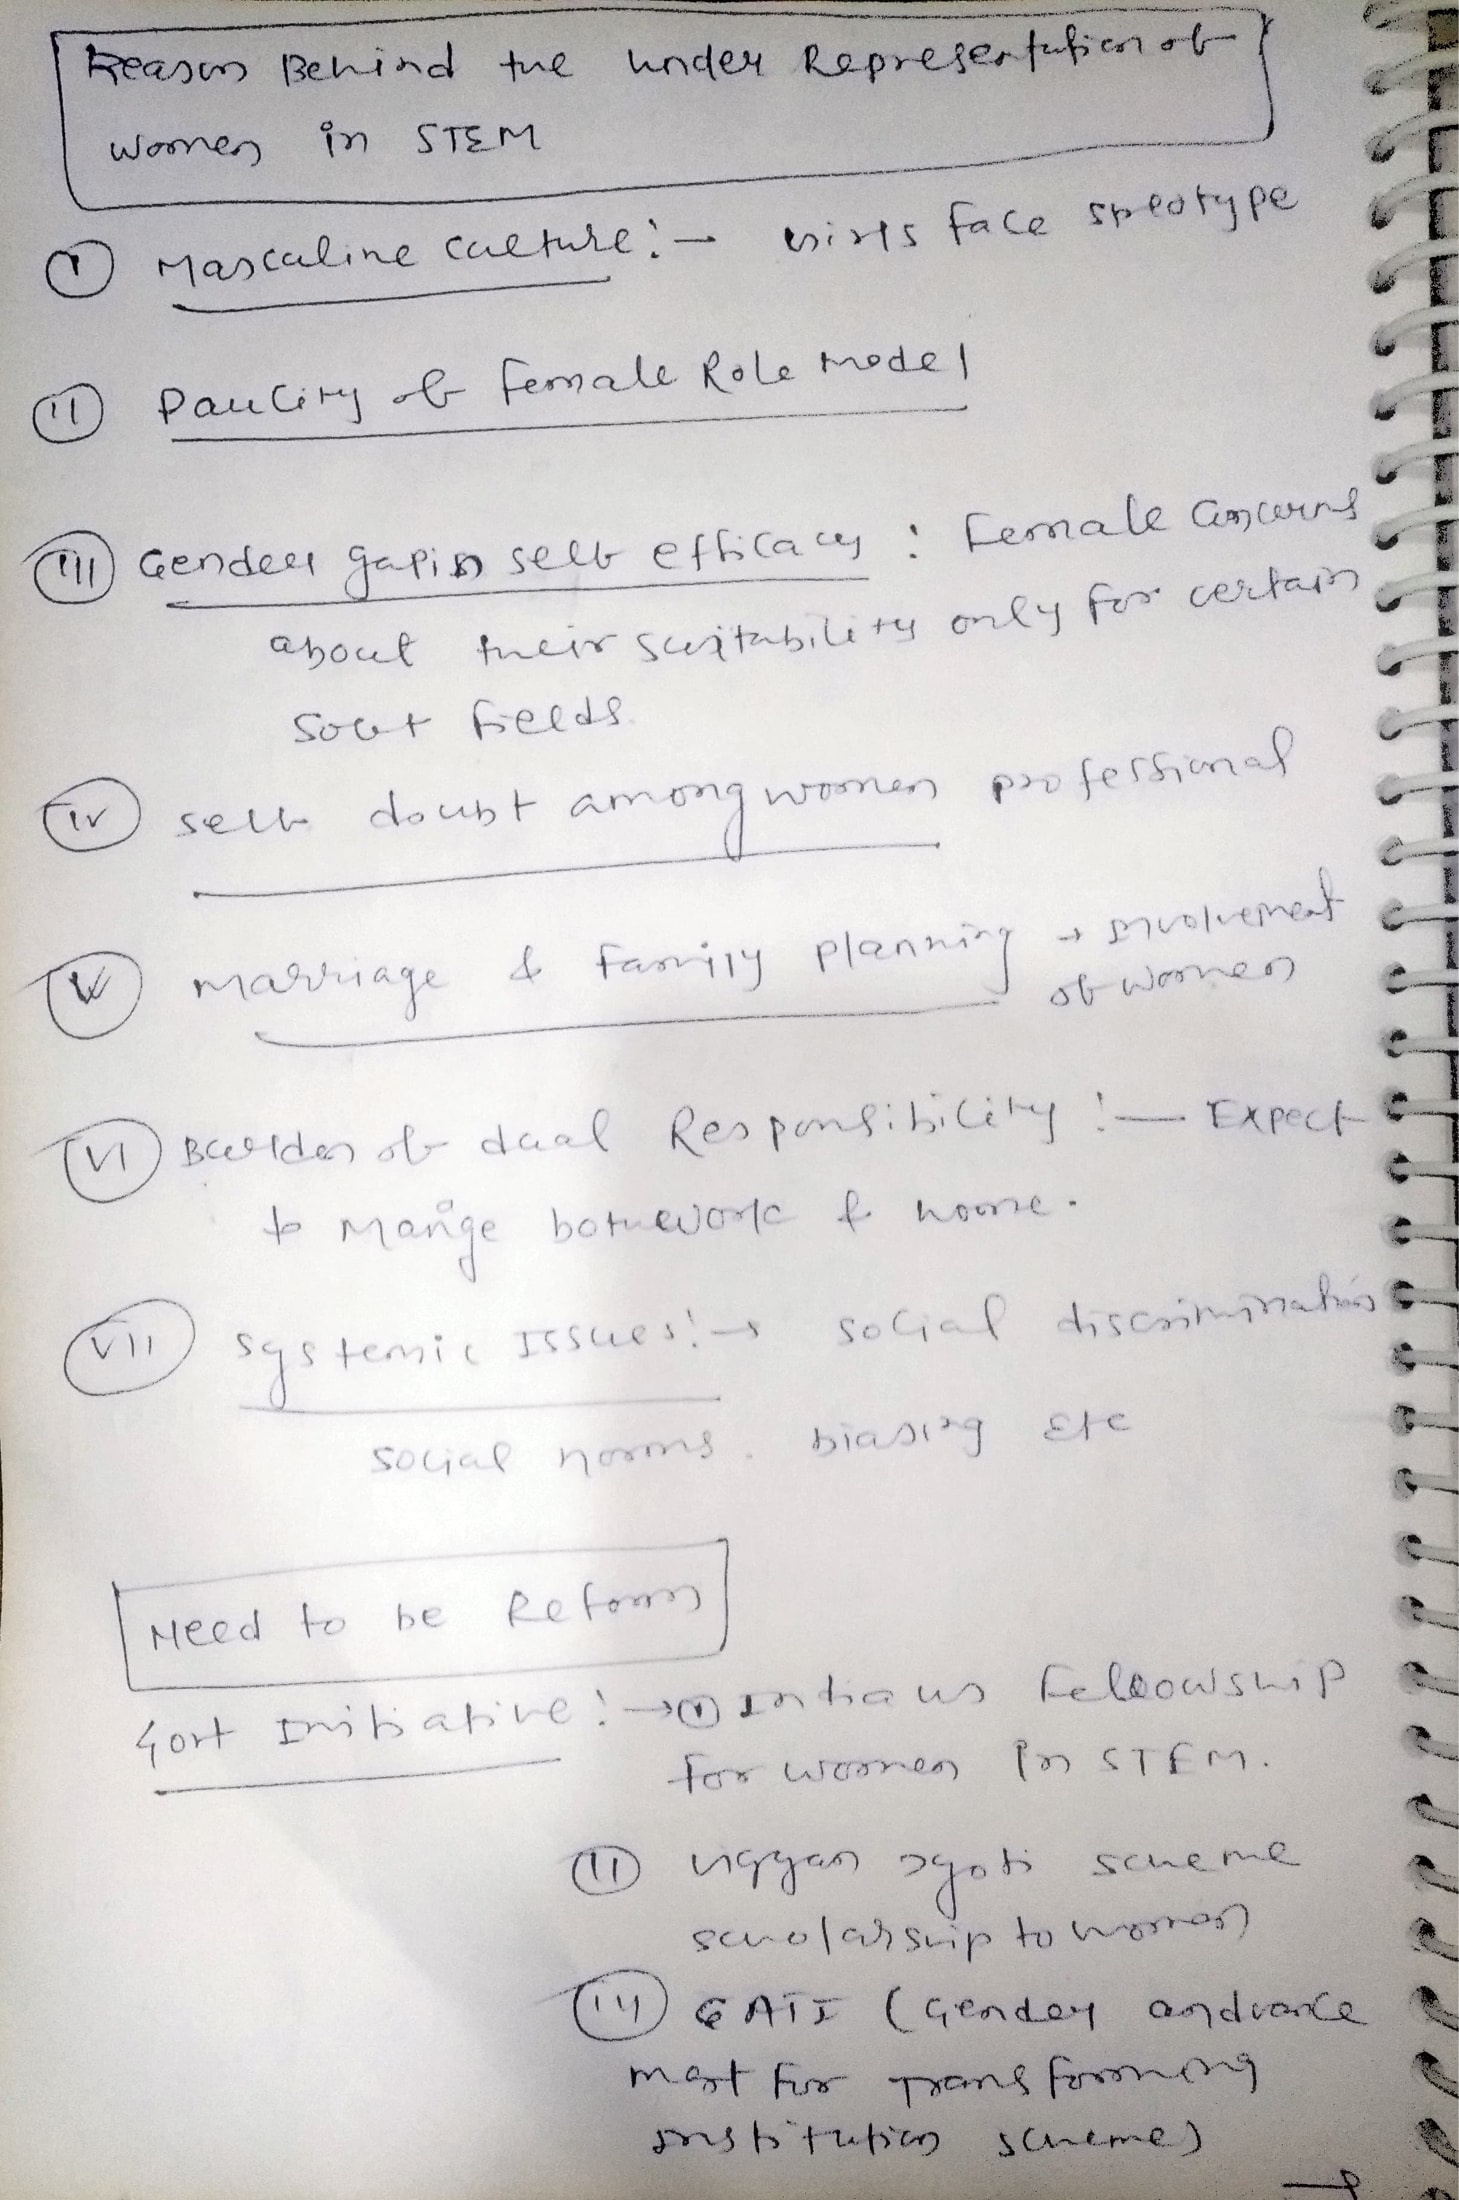 Reason Behind the under Representation of
women in STEM
(I) Mascaline culture :→ Girls face streotype
(II) Paucity of female Role model
(III) Gender gap in self efficacy : Female concerns
about their suitability only for certain
soft fields.
(IV) self doubt among women professional
(V) marriage & family planning → Involvement
of women
(VI) Burden of dual Responsibility :— Expect
to Mange both work & home.
(VII) systemic Issues :→ social discrimination
social norms. biasing etc
Need to be Reform
Govt Initiative :→ (I) Indiaus Fellowship
for women in STEM.
(II) vigyan Jyoti scheme
scholarship to women
(III) GATI (Gender andvance
ment for Transforming
institution scheme)
→